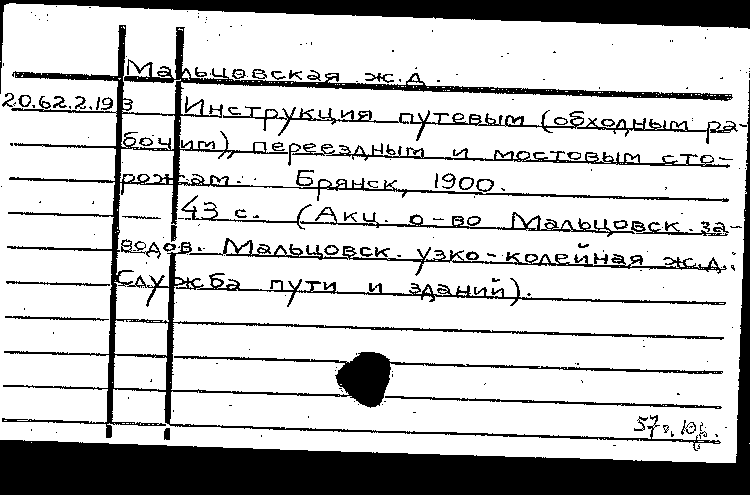 Мальцовская ж.д.
20.62.2.193 Инструкция путевым (обходным ра-
бочим), переездным и мостовым сто-
рожам. Брянск, 1900.
43 с. (Акц. о-во Мальцовск. за-
водов. Мальцовск. узко-колейная ж.д.:
Служба пути и зданий).
57 г.